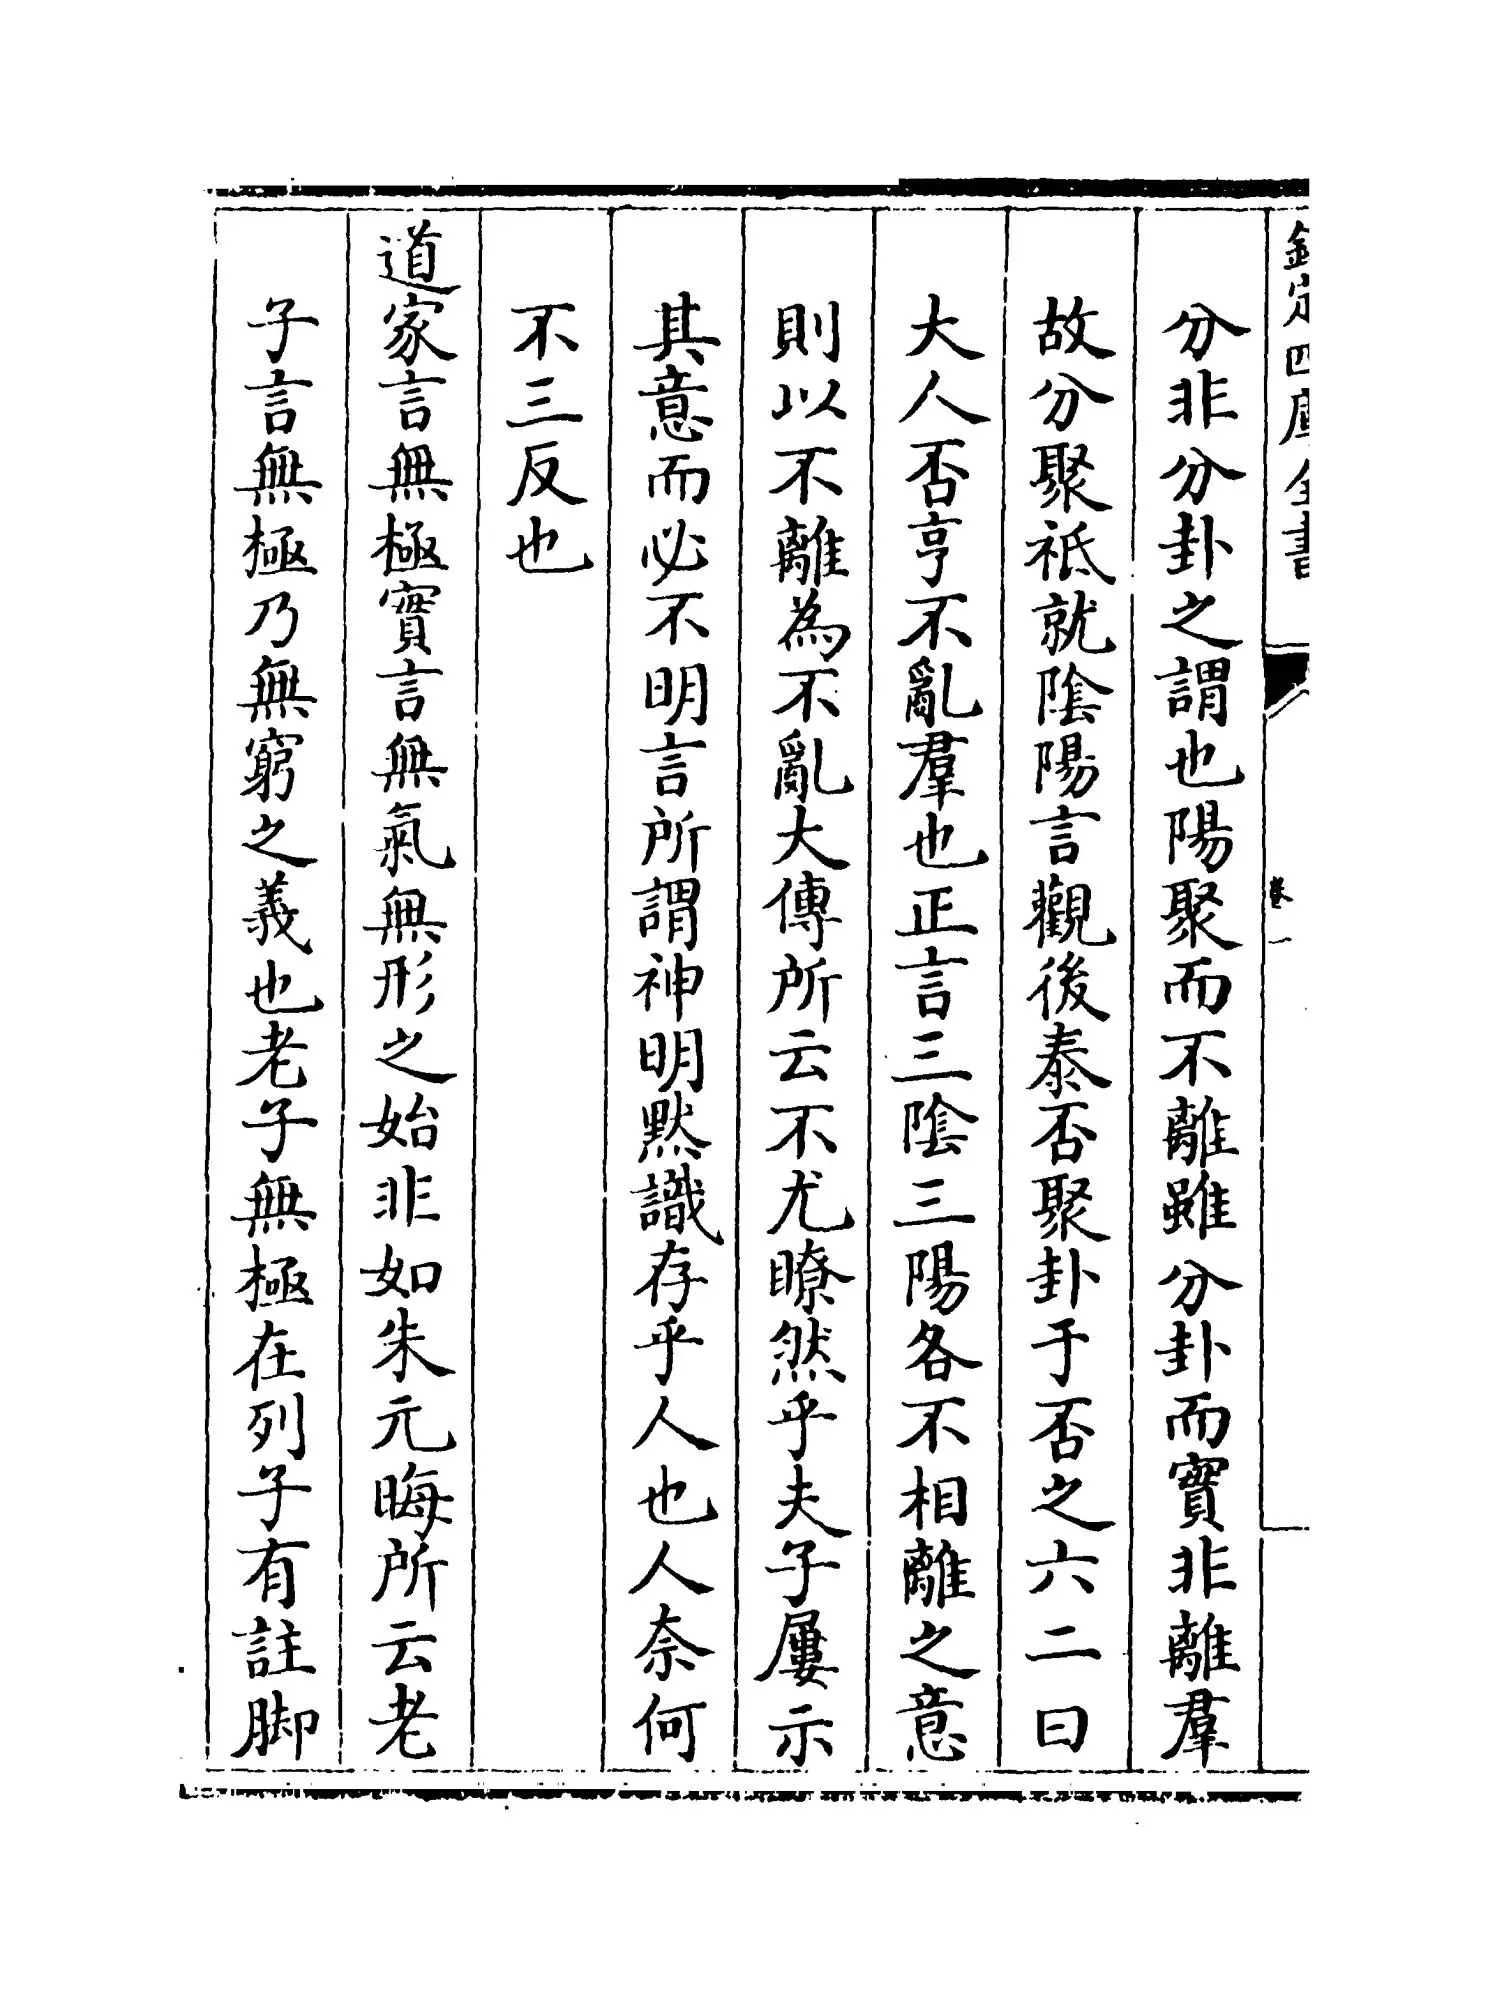 欽定四庫全書
卷一
分非分卦之謂也陽聚而不離雖分卦而實非離羣
故分聚祗就陰陽言觀後泰否聚卦于否之六二曰
大人否亨不亂羣也正言三陰三陽各不相離之意
則以不離為不亂大傳所云不尤瞭然乎夫子屢示
其意而必不明言所謂神明黙識存乎人也人奈何
不三反也
道家言無極實言無氣無形之始非如朱元晦所云老
子言無極乃無窮之義也老子無極在列子有註脚